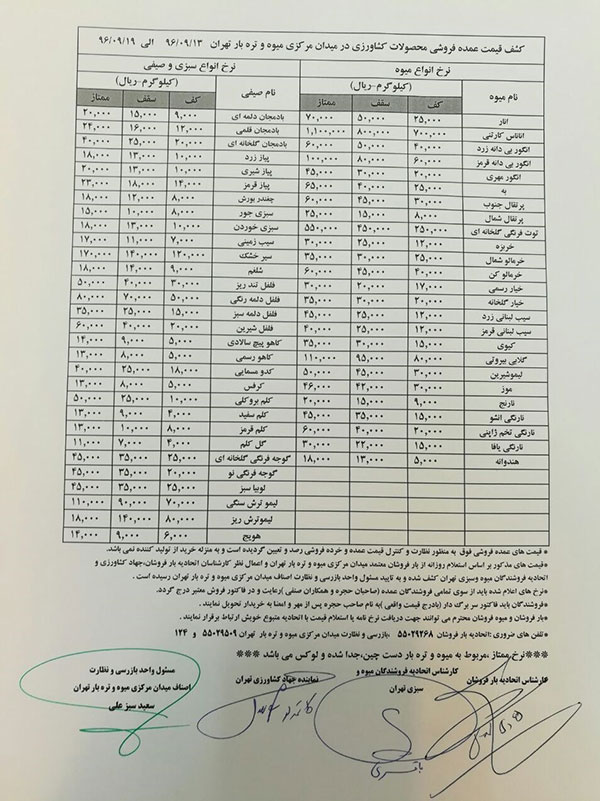 کشف قیمت عمده فروشی محصولات کشاورزی در میدان مرکزی میوه و تره بار تهران ۹۶/۰۹/۱۳ الی ۹۶/۰۹/۱۹
نرخ انواع میوه نرخ انواع سبزی و صیفی
نام میوه (کیلوگرم-ریال) نام صیفی (کیلوگرم-ریال)
کف سقف ممتاز کف سقف ممتاز
انار ۲۵,۰۰۰ ۵۰,۰۰۰ ۷۰,۰۰۰ بادمجان دلمه ای ۹,۰۰۰ ۱۵,۰۰۰ ۲۰,۰۰۰
اناناس کارتنی ۷۰۰,۰۰۰ ۸۰۰,۰۰۰ ۱,۱۰۰,۰۰۰ بادمجان قلمی ۱۲,۰۰۰ ۱۶,۰۰۰ ۲۴,۰۰۰
انگور بی دانه زرد ۴۰,۰۰۰ ۵۰,۰۰۰ ۶۰,۰۰۰ بادمجان گلخانه ای ۲۰,۰۰۰ ۲۵,۰۰۰ ۴۰,۰۰۰
انگور بی دانه قرمز ۶۰,۰۰۰ ۸۰,۰۰۰ ۱۰۰,۰۰۰ پیاز زرد ۱۰,۰۰۰ ۱۳,۰۰۰ ۱۸,۰۰۰
انگور مهری ۲۰,۰۰۰ ۳۰,۰۰۰ ۴۵,۰۰۰ پیاز شیری ۱۰,۰۰۰ ۱۳,۰۰۰ ۲۰,۰۰۰
به ۲۵,۰۰۰ ۴۰,۰۰۰ ۶۵,۰۰۰ پیاز قرمز ۱۴,۰۰۰ ۱۸,۰۰۰ ۲۳,۰۰۰
پرتقال جنوب ۳۰,۰۰۰ ۴۵,۰۰۰ ۶۰,۰۰۰ چغندر بورش ۸,۰۰۰ ۱۲,۰۰۰ ۱۸,۰۰۰
پرتقال شمال ۸,۰۰۰ ۱۵,۰۰۰ ۲۵,۰۰۰ سبزی جور ۸,۰۰۰ ۱۰,۰۰۰ ۱۵,۰۰۰
توت فرنگی گلخانه ای ۲۵۰,۰۰۰ ۴۵۰,۰۰۰ ۵۵۰,۰۰۰ سبزی خوردن ۱۰,۰۰۰ ۱۳,۰۰۰ ۱۸,۰۰۰
خربزه ۱۲,۰۰۰ ۲۵,۰۰۰ ۳۰,۰۰۰ سیب زمینی ۷,۰۰۰ ۱۱,۰۰۰ ۱۷,۰۰۰
خرمالو شمال ۲۵,۰۰۰ ۳۰,۰۰۰ ۳۵,۰۰۰ سیر خشک ۱۲۰,۰۰۰ ۱۴۰,۰۰۰ ۱۷۰,۰۰۰
خرمالو کن ۴۰,۰۰۰ ۴۵,۰۰۰ ۶۰,۰۰۰ شلغم ۹,۰۰۰ ۱۴,۰۰۰ ۱۸,۰۰۰
خیار رسمی ۱۷,۰۰۰ ۲۰,۰۰۰ ۳۰,۰۰۰ فلفل تند ریز ۳۰,۰۰۰ ۴۰,۰۰۰ ۵۰,۰۰۰
خیار گلخانه ۲۰,۰۰۰ ۳۰,۰۰۰ ۳۵,۰۰۰ فلفل دلمه رنگی ۵۰,۰۰۰ ۷۰,۰۰۰ ۸۰,۰۰۰
سیب لبنانی زرد ۱۲,۰۰۰ ۲۵,۰۰۰ ۴۵,۰۰۰ فلفل دلمه سبز ۱۵,۰۰۰ ۲۵,۰۰۰ ۳۵,۰۰۰
سیب لبنانی قرمز ۱۲,۰۰۰ ۲۵,۰۰۰ ۴۰,۰۰۰ فلفل شیرین ۲۰,۰۰۰ ۴۰,۰۰۰ ۶۰,۰۰۰
کیوی ۱۵,۰۰۰ ۳۰,۰۰۰ ۳۵,۰۰۰ کاهو پیچ سالادی ۵,۰۰۰ ۹,۰۰۰ ۱۴,۰۰۰
گلابی بیروتی ۸۰,۰۰۰ ۹۵,۰۰۰ ۱۱۰,۰۰۰ کاهو رسمی ۵,۰۰۰ ۸,۰۰۰ ۱۳,۰۰۰
لیموشیرین ۳۰,۰۰۰ ۴۵,۰۰۰ ۵۰,۰۰۰ کدو مسمایی ۱۸,۰۰۰ ۲۵,۰۰۰ ۴۰,۰۰۰
موز ۳۰,۰۰۰ ۴۲,۰۰۰ ۴۶,۰۰۰ کرفس ۵,۰۰۰ ۸,۰۰۰ ۱۳,۰۰۰
نارنج ۹,۰۰۰ ۱۵,۰۰۰ ۲۰,۰۰۰ کلم بروکلی ۱۰,۰۰۰ ۲۵,۰۰۰ ۵۰,۰۰۰
نارنگی انشو ۱۵,۰۰۰ ۳۵,۰۰۰ ۴۵,۰۰۰ کلم سفید ۴,۰۰۰ ۹,۰۰۰ ۱۳,۰۰۰
نارنگی تخم ژاپنی ۲۰,۰۰۰ ۴۰,۰۰۰ ۶۰,۰۰۰ کلم قرمز ۸,۰۰۰ ۱۰,۰۰۰ ۱۳,۰۰۰
نارنگی یافا ۱۵,۰۰۰ ۲۲,۰۰۰ ۳۰,۰۰۰ گل کلم ۴,۰۰۰ ۷,۰۰۰ ۱۱,۰۰۰
هندوانه ۵,۰۰۰ ۱۳,۰۰۰ ۱۸,۰۰۰ گوجه فرنگی گلخانه ای ۲۵,۰۰۰ ۳۵,۰۰۰ ۴۵,۰۰۰
گوجه فرنگی نو ۲۰,۰۰۰ ۳۵,۰۰۰ ۴۵,۰۰۰
لوبیا سبز ۲۵,۰۰۰ ۳۵,۰۰۰ ۴۵,۰۰۰
لیمو ترش سنگی ۷۰,۰۰۰ ۹۰,۰۰۰ ۱۱۰,۰۰۰
لیموترش ریز ۸۰,۰۰۰ ۱۴۰,۰۰۰ ۱۸,۰۰۰
هویج ۶,۰۰۰ ۹,۰۰۰ ۱۴,۰۰۰
* قیمت های عمده فروشی فوق به منظور نظارت و کنترل قیمت عمده و خرده فروشی رصد و تعیین گردیده است و به منزله خرید از تولید کننده نمی باشد.
* قیمت های مذکور بر اساس استعلام روزانه از بار فروشان معتمد میدان مرکزی میوه و تره بار تهران و اعمال نظر کارشناسان اتحادیه بار فروشان،جهاد کشاورزی و
اتحادیه فروشندگان میوه وسبزی تهران کشف شده و به تایید مسئول واحد بازرسی و نظارت اصناف میدان مرکزی میوه و تره بار تهران رسیده است .
* نرخ های اعلام شده باید از سوی تمامی فروشندگان عمده (صاحبان حجره و همکاران صنفی )رعایت و در فاکتور فروش معتبر درج گردد.
*فروشندگان باید فاکتور سر برگ دار (بادرج قیمت واقعی )به نام صاحب حجره پس از مهر و امضا به خریدار تحویل نمایند .
* بار فروشان و میوه فروشان محترم می توانند جهت دریافت نرخ نامه یا استعلام قیمت با اتحادیه متبوع خویش ارتباط برقرار نمایند .
* تلفن های ضروری :اتحادیه بار فروشان ۵۵۰۲۹۲۶۸ ،بازرسی و نظارت میدان مرکزی میوه و تره بار تهران ۵۵۰۲۹۵۰۹ و ۱۲۴
*** نرخ ممتاز ،مربوط به میوه و تره بار دست چین،جدا شده و لوکس می باشد ***
کارشناس اتحادیه بار فروشان
کارشناس اتحادیه فروشندگان میوه و
سبزی تهران
نماینده جهاد کشاورزی تهران
مسئول واحد بازرسی و نظارت
اصناف میدان مرکزی میوه و تره بار تهران
سعید سبز علی